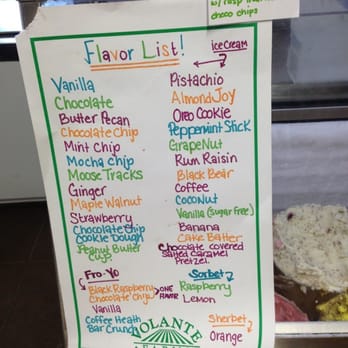 w/ rasp
choco chips
Flavor List!
ice cream
Vanilla
Chocolate
Butter Pecan
Chocolate Chip
Mint Chip
Mocha chip
Moose Tracks
Ginger
Maple Walnut
Strawberry
Chocolate Chip
Cookie Dough
Peanut Butter
Cups
Pistachio
Almond Joy
Oreo Cookie
Peppermint Stick
GrapeNut
Rum Raisin
Black Bear
Coffee
Coconut
Vanilla (Sugar Free)
Banana
Cake Batter
Chocolate covered
Salted Caramel
Pretzel.
Fro-Yo
Black Raspberry
Chocolate Chip
ONE
FLAVOR
Vanilla
Coffee Heath
Bar Crunch
Sorbet
Raspberry
Lemon
Sherbet
Orange
VOLANTE